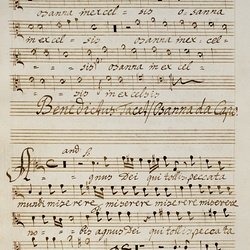 osanna in excel - sis osanna
in excel - sis osanna in excel -
- sis osanna in excelsis
Benedictus Tacet / Osanna da Capo
and.
Agnus Dei qui tollis peccata
mundi miserere miserere miserere miserere
nobis agnus Dei qui tollis peccata